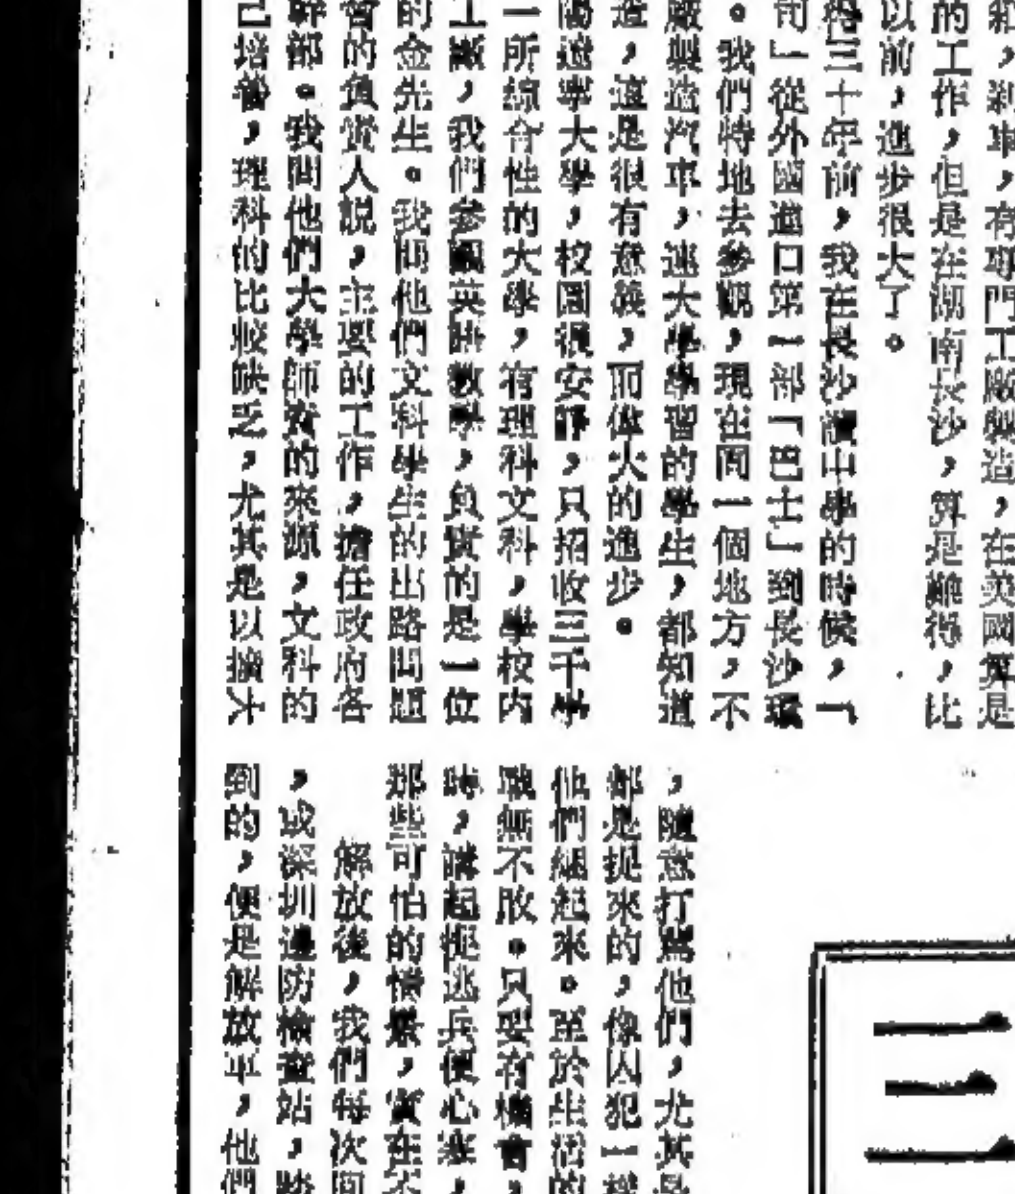 剎車,有專門工廠製造,在美國算是
的工作,但是在湖南長沙,算是難得,比
以前,進步很大了。
三十年前,我在長沙讀中學的時候,「
司」從外國進口第一部「巴士」到長沙環
。我們特地去參觀,現在同一個地方,不
廠製造汽車,連大學學習的學生,都知道
造,這是很有意義,而偉大的進步。
陽遼寧大學,校園很安靜,只招收三千學
一所綜合性的大學,有理科文科,學校內
工廠,我們參觀英語教學,負責的是一位
的金先生。我問他們文科學生的出路問題
的負責人說,主要的工作,擔任政府各
幹部。我問他們大學師資的來源,文科的
己培養,理科的比較缺乏,尤其是以
,隨意打罵他們,尤其是
都是捉來的,像囚犯一樣
他們綑起來。至於生活的
戰無不敗。只要有機會,
時,講起拒逃兵便心寒,
那些可怕的情景,實在不
解放後,我們每次回
,或深圳邊防檢查站,
到的,便是解放軍,他們
三三